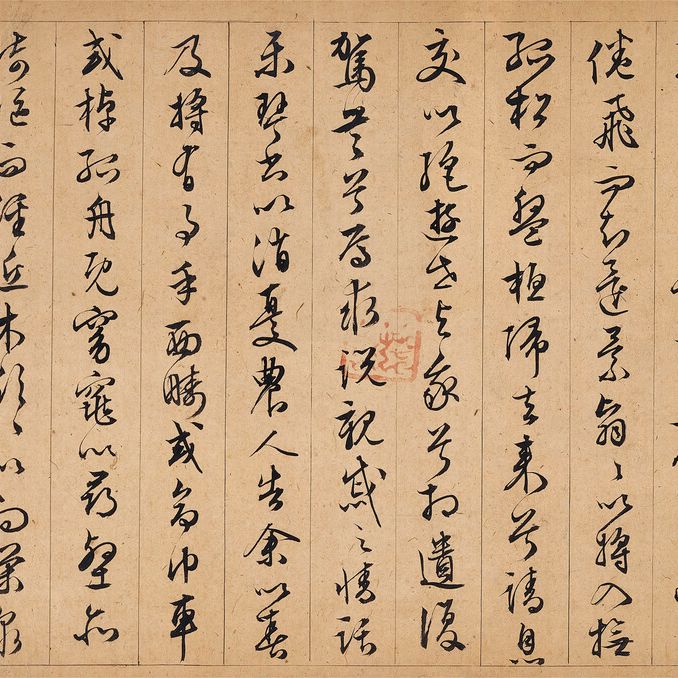 倦飛而知還景翳〻以將入撫
孤松而盤桓歸去來兮請息
交以絕遊世與我兮相遺復
駕言兮焉求説親戚之情話
樂琴書以消憂農人告余以春
及將有事乎西疇或命巾車
或棹孤舟既窈窕以尋壑亦
崎嶇而經丘木欣〻以向榮泉